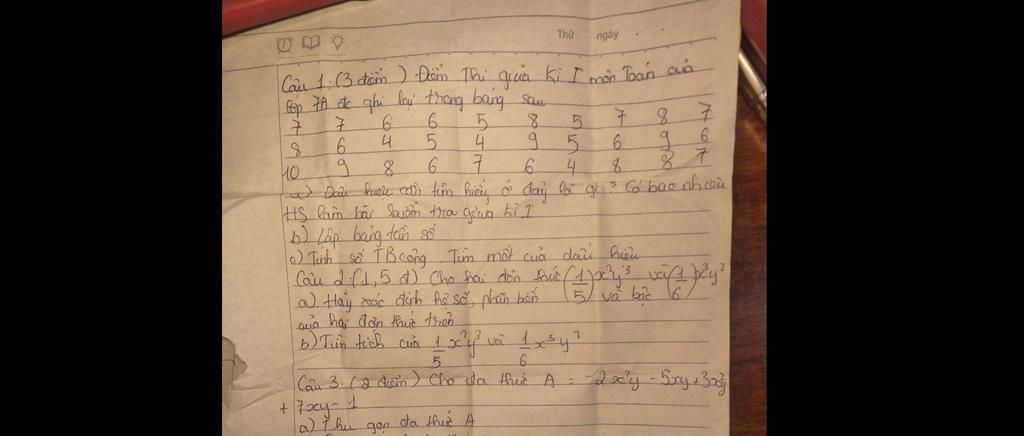 Thứ ngày
Câu 1: (3 điểm) Điểm Thi giữa kì I môn Toán của
lớp 7A đc ghi lại trong bảng sau
7 7 6 6 5 8 5 7 8 7
8 6 4 5 4 9 5 6 9 6
10 9 8 6 7 6 4 8 8 7
a) Dấu hiệu cần tìm hiểu ở đây là gì? Có bao nhiêu
HS làm bài kiểm tra giữa kì I
b) Lập bảng tần số
c) Tính số TB cộng. Tìm mốt của dấu hiệu
Câu 2: (1,5 đ) Cho hai đơn thức (1/5)x²y³ và (1/6)x³y²
a) Hãy xác định hệ số, phần biến và bậc
của hai đơn thức trên
b) Tìm tích của 1/5 x²y³ và 1/6 x³y²
Câu 3: (2 điểm) Cho đa thức A = -2x²y - 5xy + 3x²y
+ 7xy - 1
a) Thu gọn đa thức A